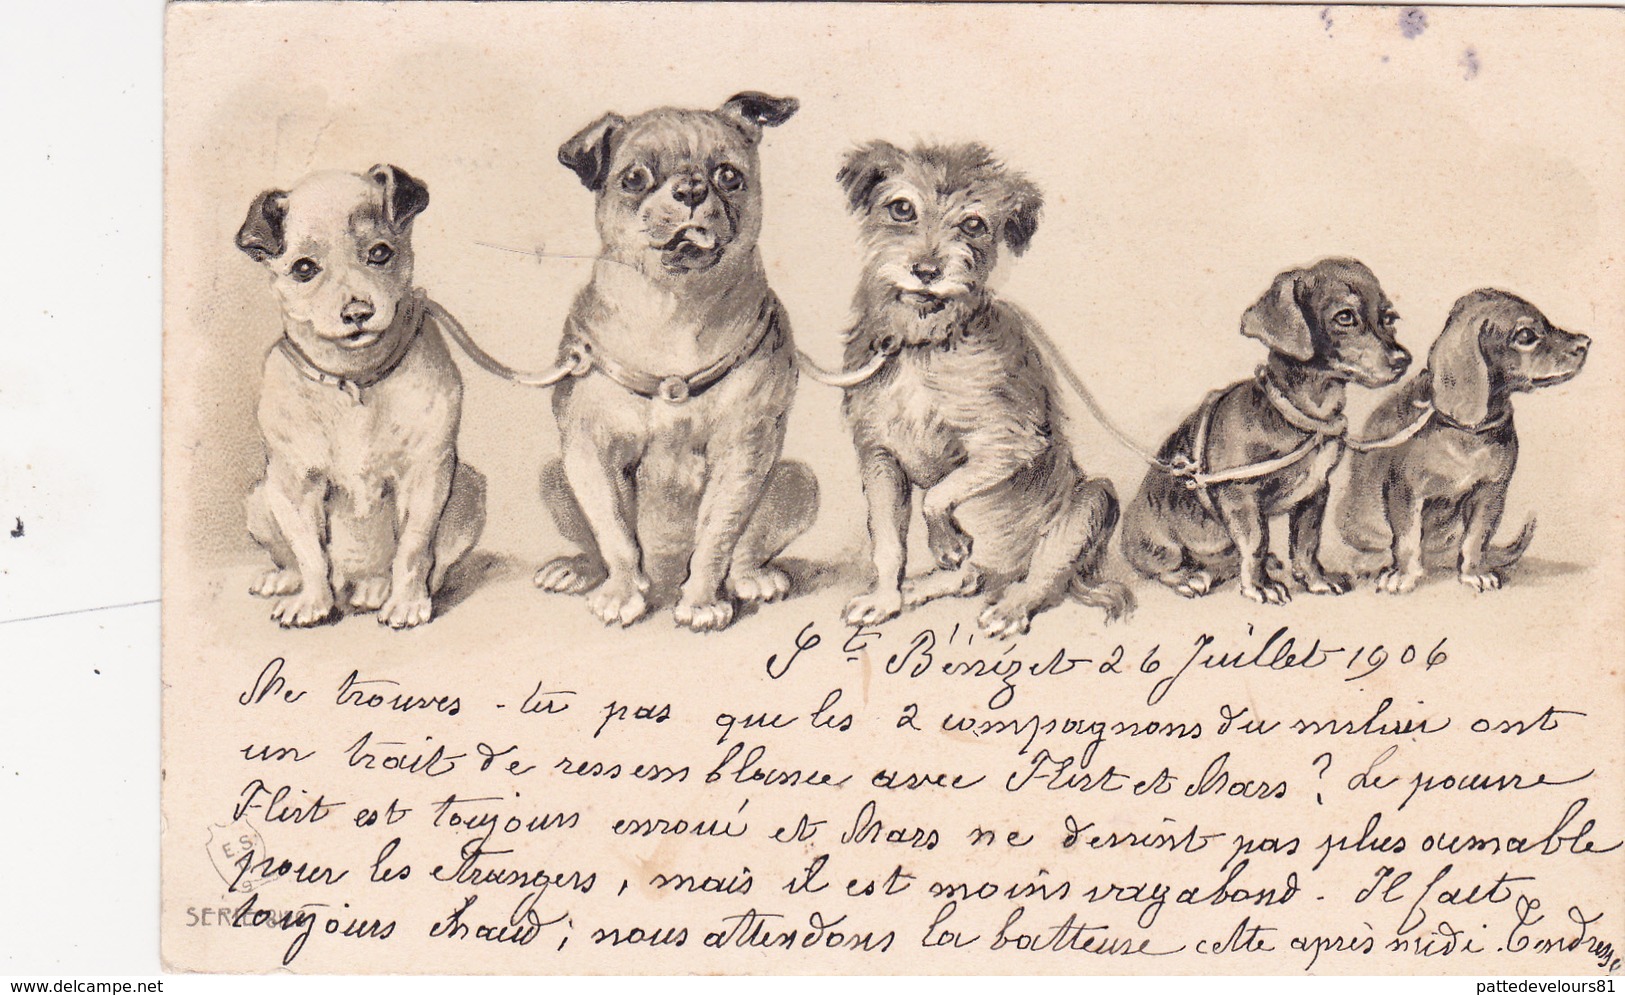 St Bénézet 26 Juillet 1906
Ne trouves-tu pas que les 2 compagnons du milieu ont
un trait de ressemblance avec Flirt et Mars? Le pauvre
Flirt est toujours enroué et Mars ne devient pas plus aimable
pour les étrangers, mais il est moins vagabond. Il fait
toujours chaud; nous attendons la batteuse cette après midi. Tendresse
E.S.
SERIE
delcampe.net
pattedevelours81